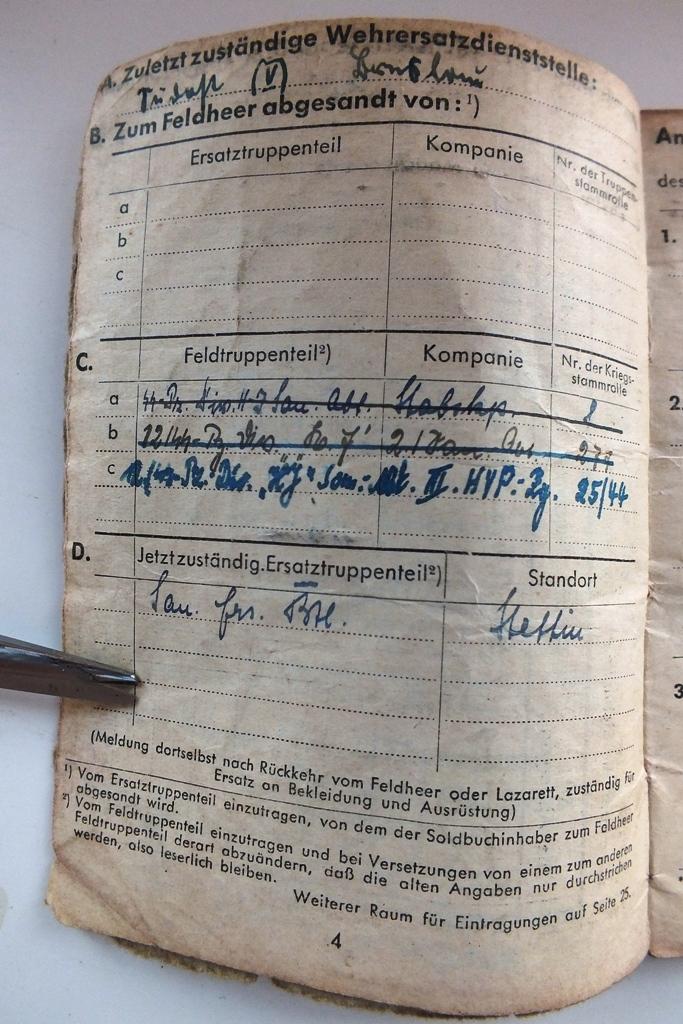 A. Zuletzt zuständige Wehrersatzdienststelle:
(V) Breslau
B. Zum Feldheer abgesandt von: ¹)
Ersatztruppenteil Kompanie Nr. der Truppenstammrolle
a
b
c
C. Feldtruppenteil²) Kompanie Nr. der Kriegsstammrolle
a ᛋᛋ-Pz. Div. H J San. Abt. Stabskp.
b 12 ᛋᛋ-Pz Div 2 / San Abt. 277
c 12/ᛋᛋ-Pz. Div. „HJ" San.-Abt. III. HVP.-Zg. 25/44
D. Jetzt zuständig. Ersatztruppenteil²) Standort
San. Ers. Btl. Stettin
(Meldung dortselbst nach Rückkehr vom Feldheer oder Lazarett, zuständig für
Ersatz an Bekleidung und Ausrüstung)
¹) Vom Ersatztruppenteil einzutragen, von dem der Soldbuchinhaber zum Feldheer
abgesandt wird.
²) Vom Feldtruppenteil einzutragen und bei Versetzungen von einem zum anderen
Feldtruppenteil derart abzuändern, daß die alten Angaben nur durchstrichen
werden, also leserlich bleiben.
Weiterer Raum für Eintragungen auf Seite 25.
4
An
des
1.
2.
3